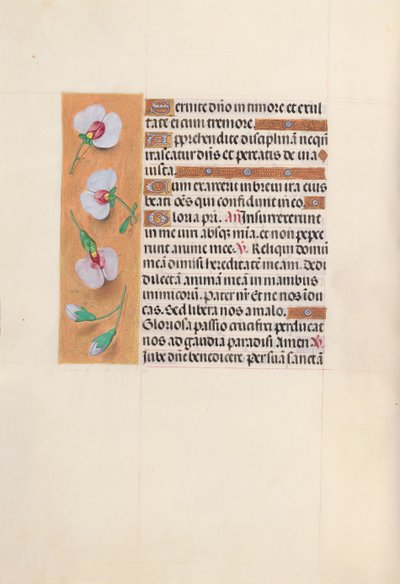 Servite dño in timore et exul
tate ei cum tremore.
Apprehendite disciplinã neqñ
irascatur dñs et pereatis de uia
iusta.
Cum exarserit in breui ira eius
beati oẽs qui confidunt in eo.
Gloria pri. Añ Insurrexerunt
in me uiri absq; mĩa. et non peper
cerunt anime mee. V. Reliqui domũ
meã dimisi hereditatẽ meam. Dedi
dilectam animã meam in manibus
inimicorũ. Pater nr̃. Et ne nos idu
cas. Sed libera nos a malo.
Gloriosa passio crucifixi perducat
nos ad gaudia paradisi. Amen V.
Iube dñe benedicere. Per suã sanctã